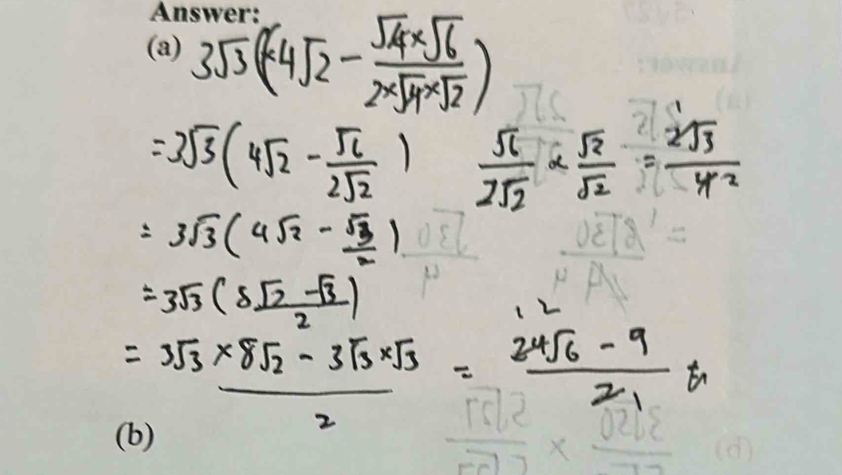 Answer:
(a) 3√3(4√2 − (√4×√6)/(2×√4×√2))
=3√3(4√2 − √6/(2√2))
√6/(2√2) × √2/√2 = 2√3/4 1 2
= 3√3(4√2 − √3/2)
=3√3((8√2 − √3)/2)
= (3√3 × 8√2 − 3√3×√3)/2 = (24√6 − 9)/2
(b)